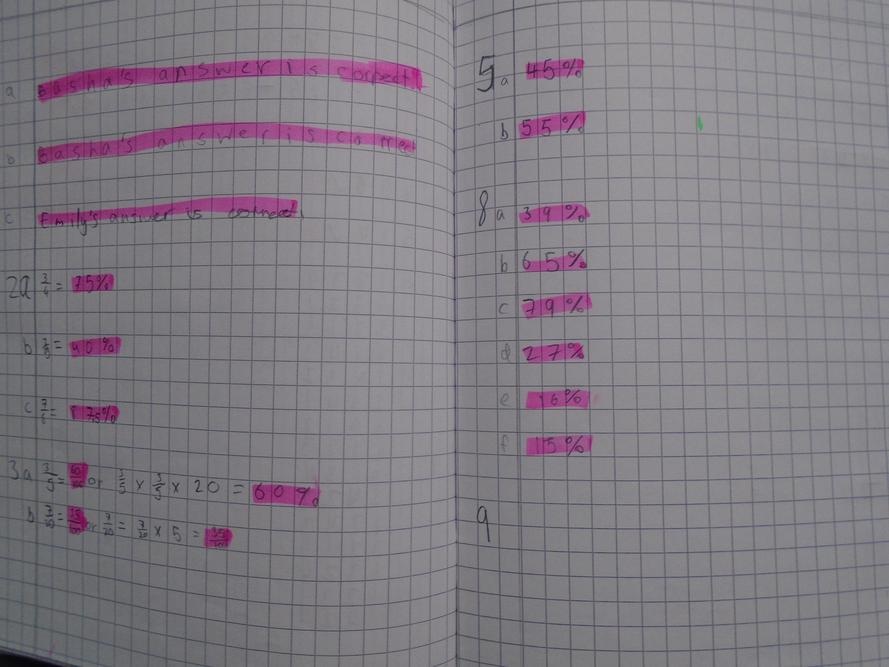 a Basha's answer is correct
b Basha's answer is correc
c Emily's answer is correct.
2a 3/4 = 75%
b 2/5 = 40%
c = 175%
3a 3/5 = 60/100 or 3/5 × 3/5 × 20 = 60%
b 7/20 = 35/100 or 7/20 = 7/20 × 5 = 35/100
5a 45%
b 55%
8a 39%
b 65%
c 79%
d 27%
e 16%
f 15%
9